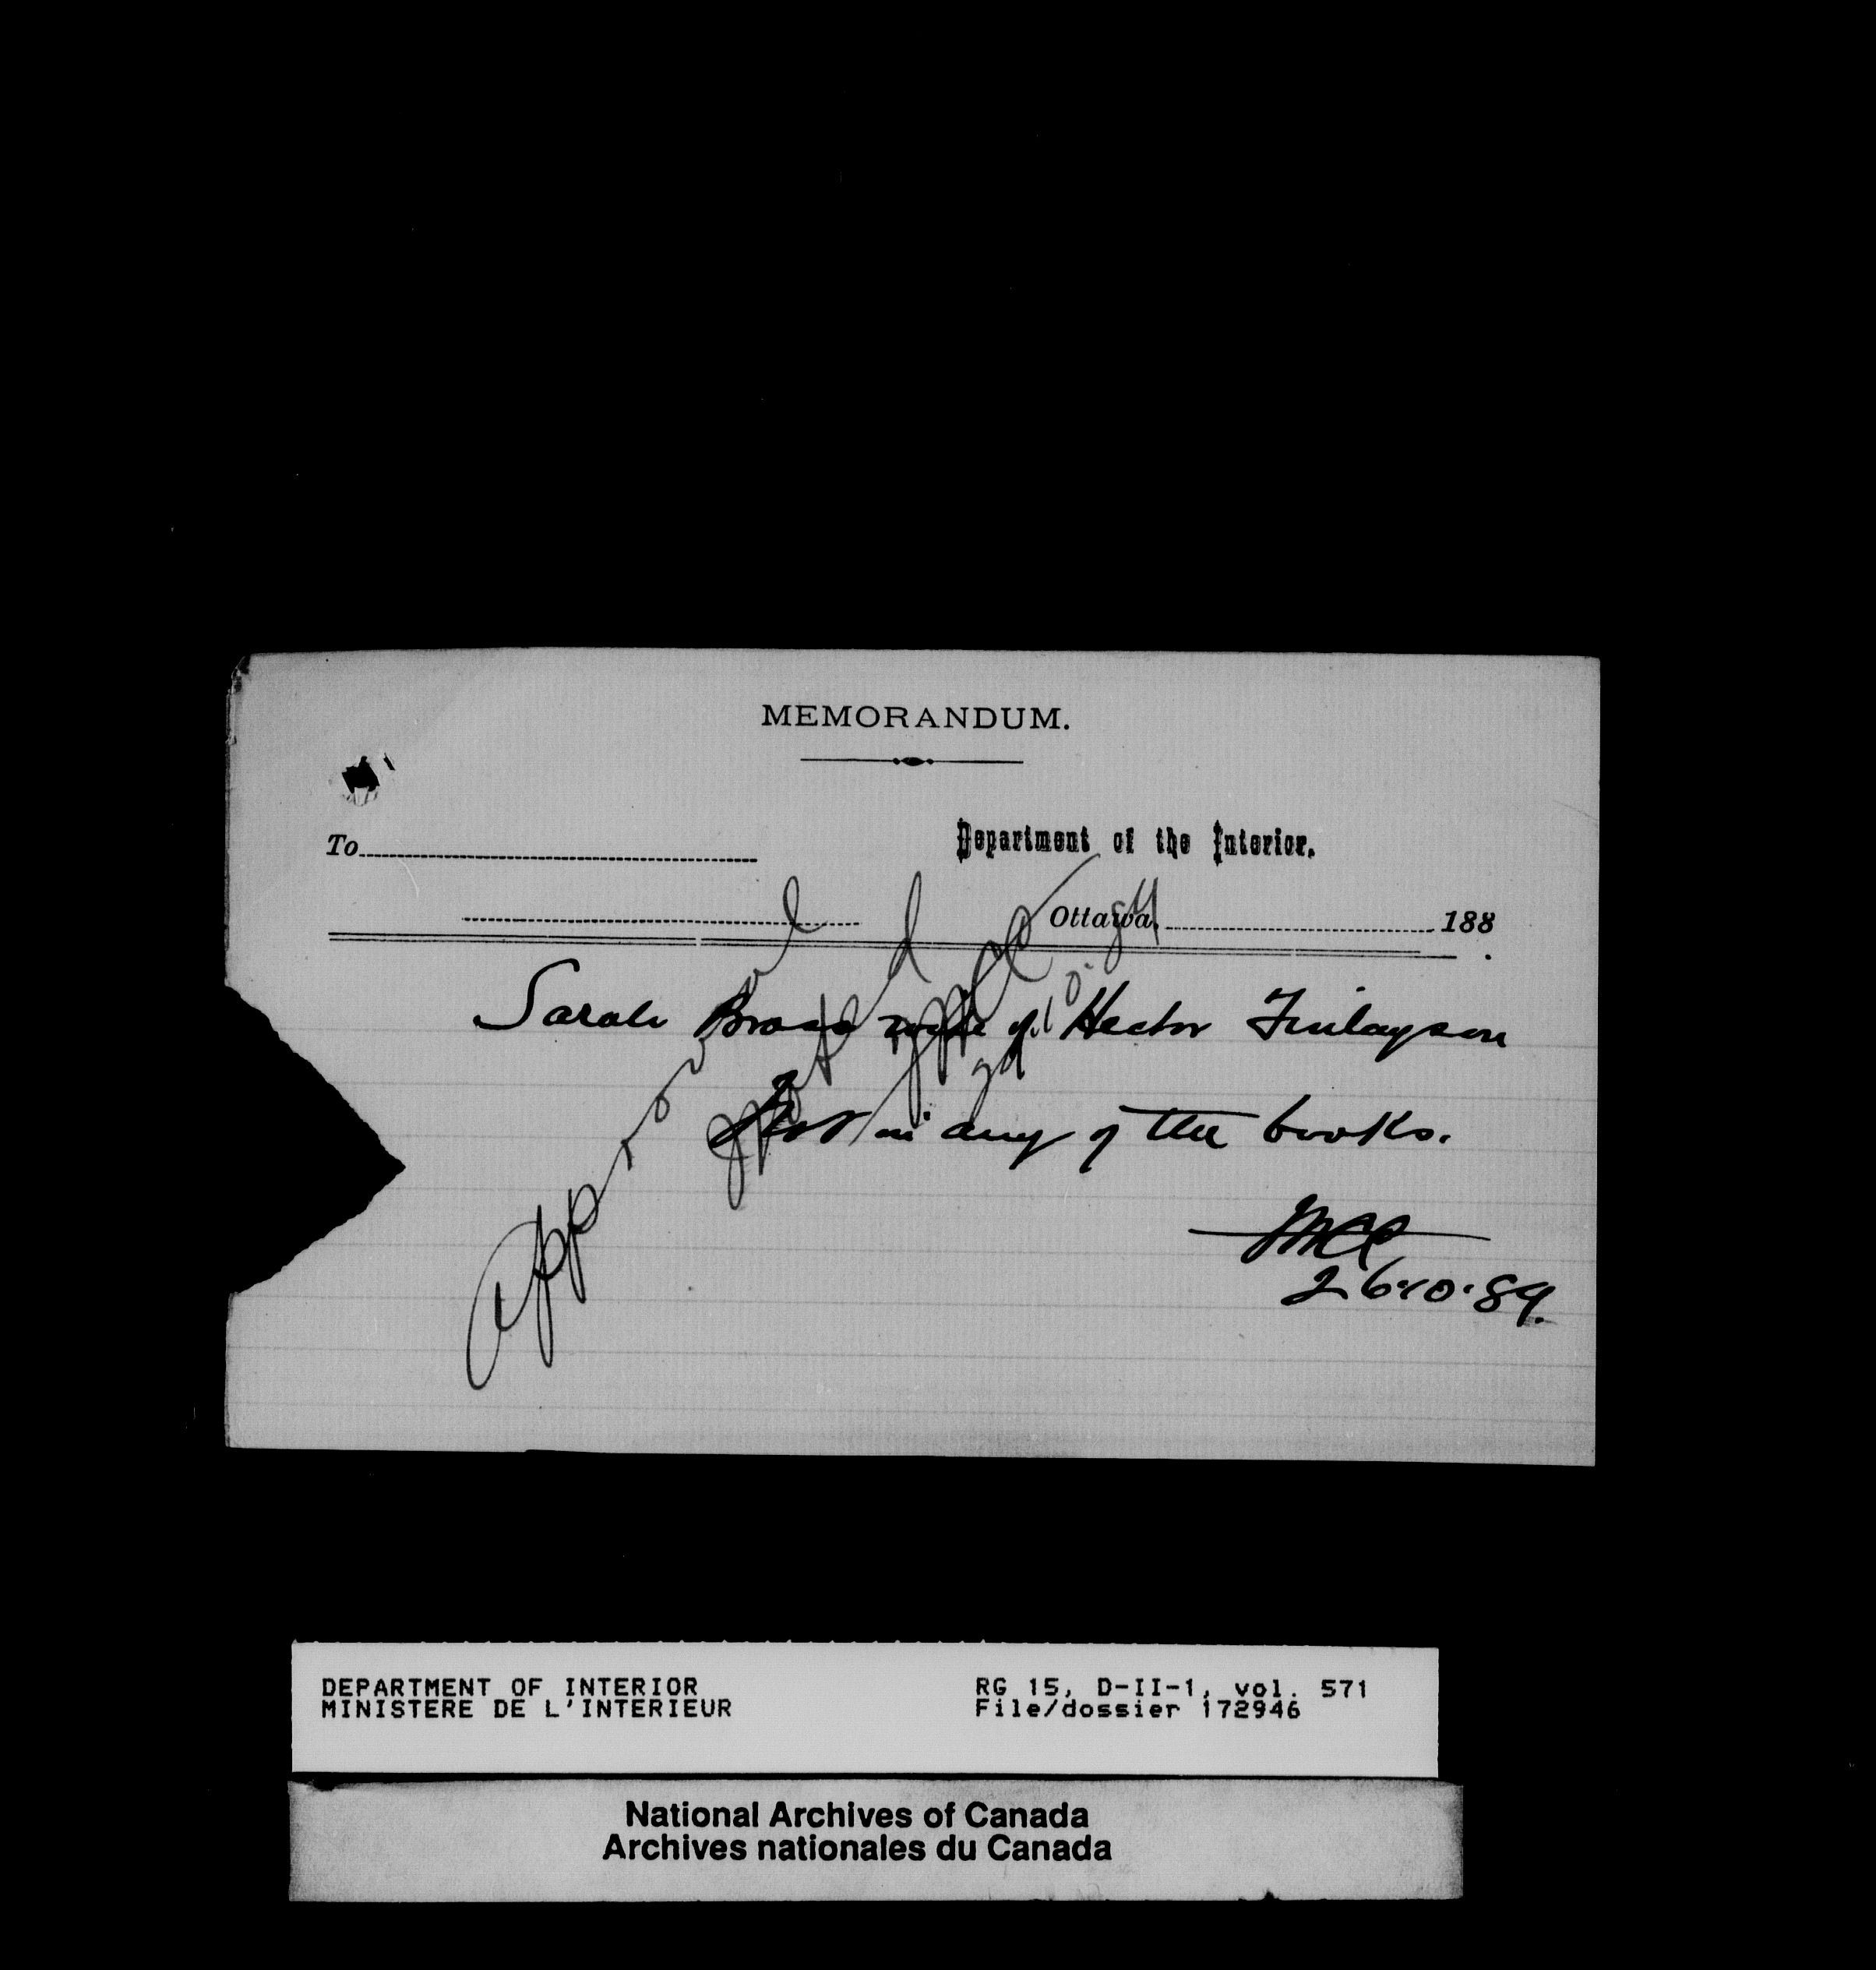 MEMORANDUM.
To
Department of the Interior.
Ottawa, 188
Sarah Brass wife of Hector Finlayson
Not in any of the books.
26·10·89.
Approved
DEPARTMENT OF INTERIOR
MINISTERE DE L'INTERIEUR
RG 15, D-II-1, vol. 571
File/dossier 172946
National Archives of Canada
Archives nationales du Canada